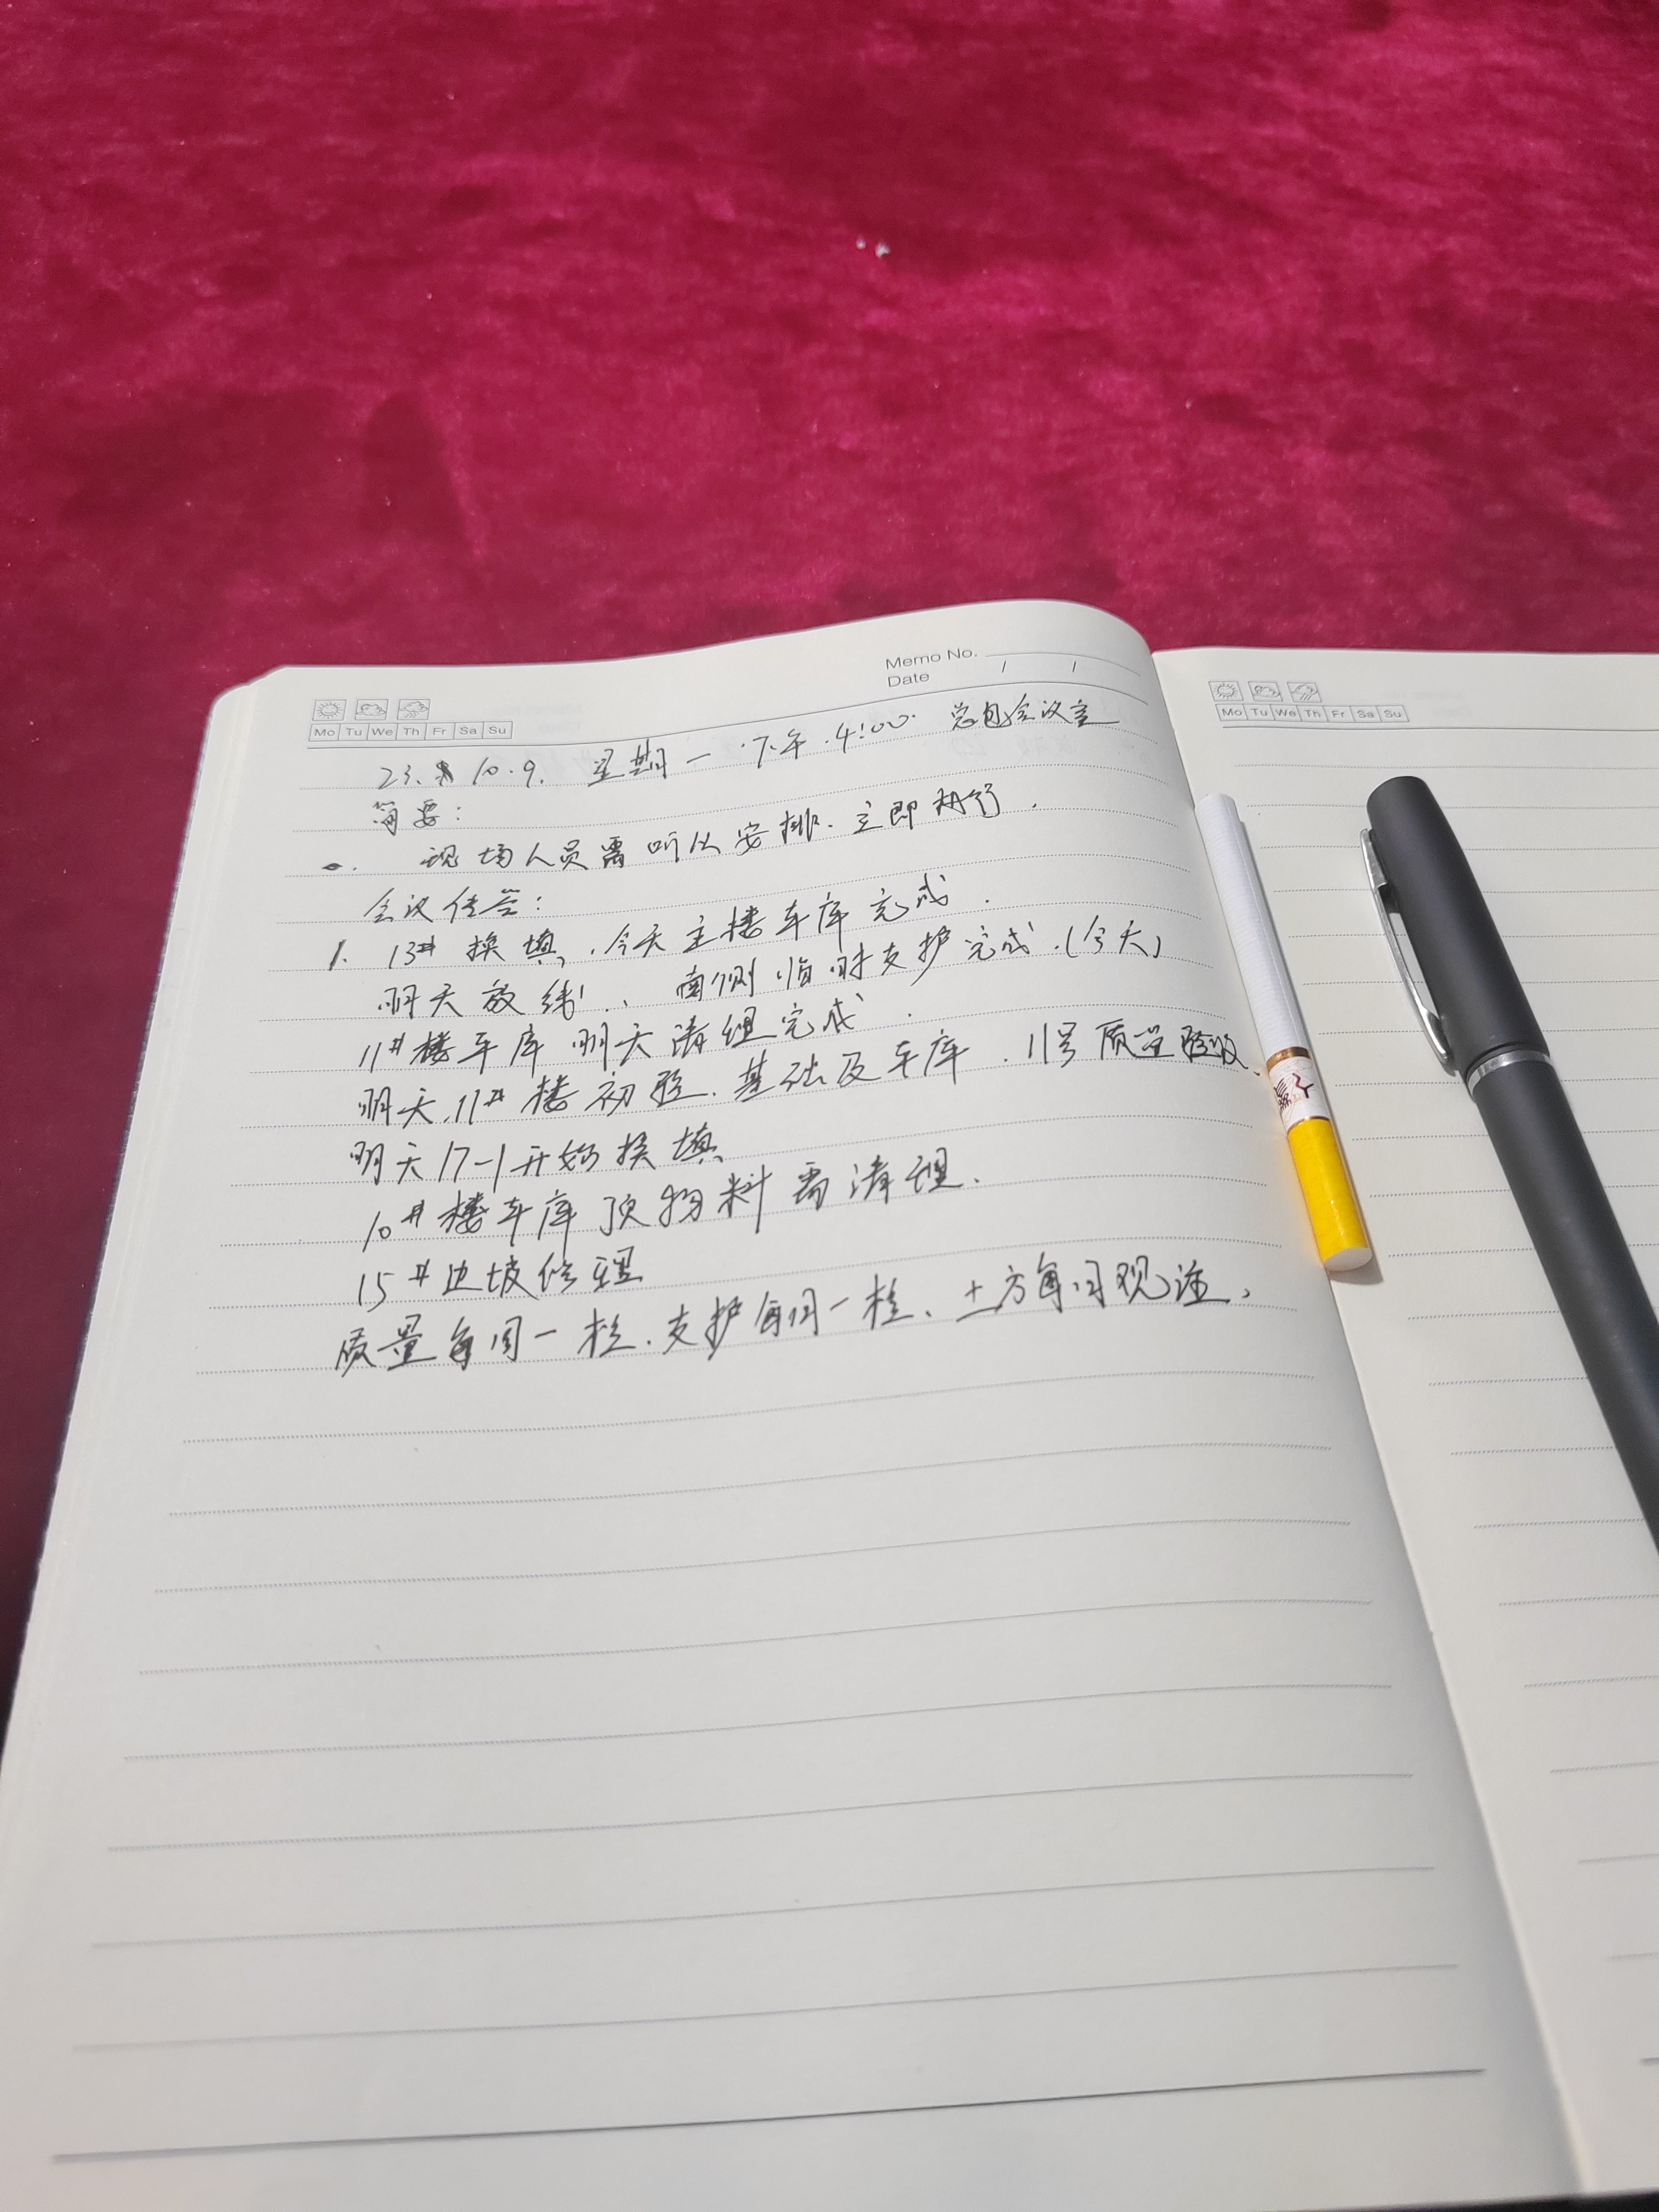 Memo No.
Date / /
Mo Tu We Th Fr Sa Su
23. 10.9. 星期一 下午 4:00 总包会议室
简要:
现场人员需听从安排. 立即执行.
会议传答:
1. 13# 换填, 今天主楼车库完成.
明天放线, 南侧临时支护完成.(今天)
11#楼车库明天清理完成.
明天.11#楼初验.基础及车库.11号质量验收、
明天17-1开始换填
10#楼车库顶物料需清理.
15#边坡修理
质量每周一检.支护每周一检、土方每周观注、
Mo Tu We Th Fr Sa Su